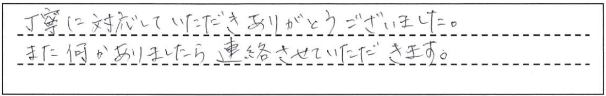 丁寧に対応していただきありがとうございました。
また何かありましたら連絡させていただきます。